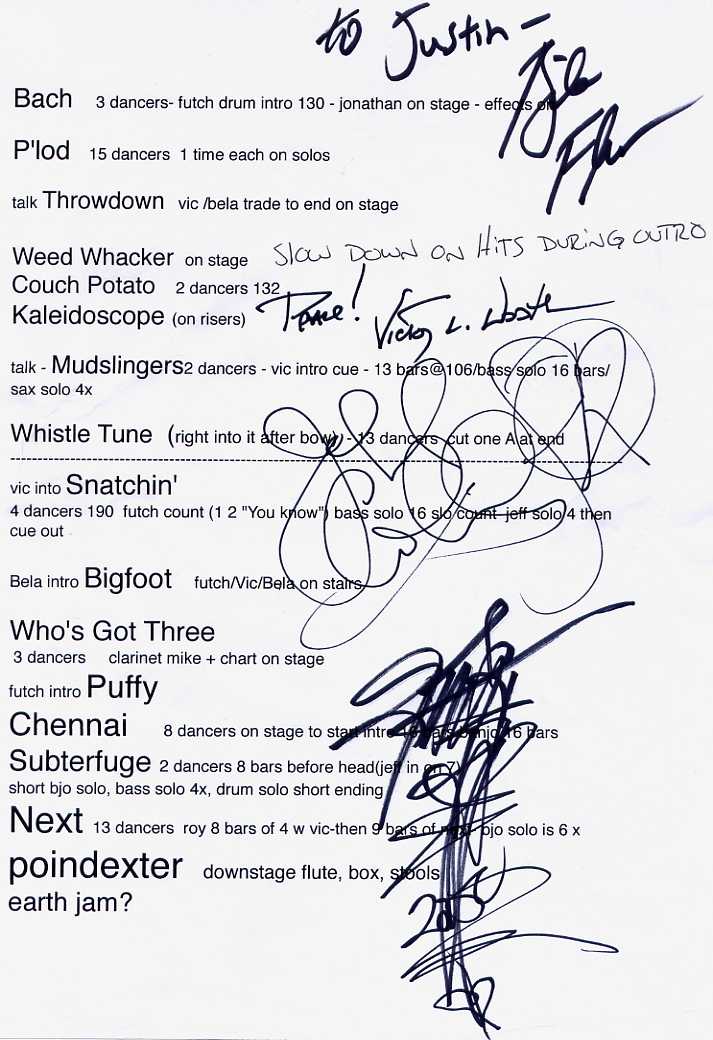 to Justin -
Bach 3 dancers- futch drum intro 130 - jonathan on stage - effects on
Bela Fleck
P'lod 15 dancers 1 time each on solos
talk Throwdown vic /bela trade to end on stage
Weed Whacker on stage SLOW DOWN ON HITS DURING OUTRO
Couch Potato 2 dancers 132
Kaleidoscope (on risers) Peace! Victor L. Wooten
talk - Mudslingers2 dancers - vic intro cue - 13 bars@106/bass solo 16 bars/
sax solo 4x
Whistle Tune (right into it after bow) - 13 dancers cut one A at end
vic into Snatchin'
4 dancers 190 futch count (1 2 "You know") bass solo 16 slo count jeff solo 4 then
cue out
Bela intro Bigfoot futch/Vic/Bela on stairs
Who's Got Three
3 dancers clarinet mike + chart on stage
futch intro Puffy
Chennai 8 dancers on stage to start intro 16 bars banjo 16 bars
Subterfuge 2 dancers 8 bars before head(jeff in on 7)
short bjo solo, bass solo 4x, drum solo short ending
Next 13 dancers roy 8 bars of 4 w vic-then 9 bars of next- bjo solo is 6 x
poindexter downstage flute, box, stools
earth jam?